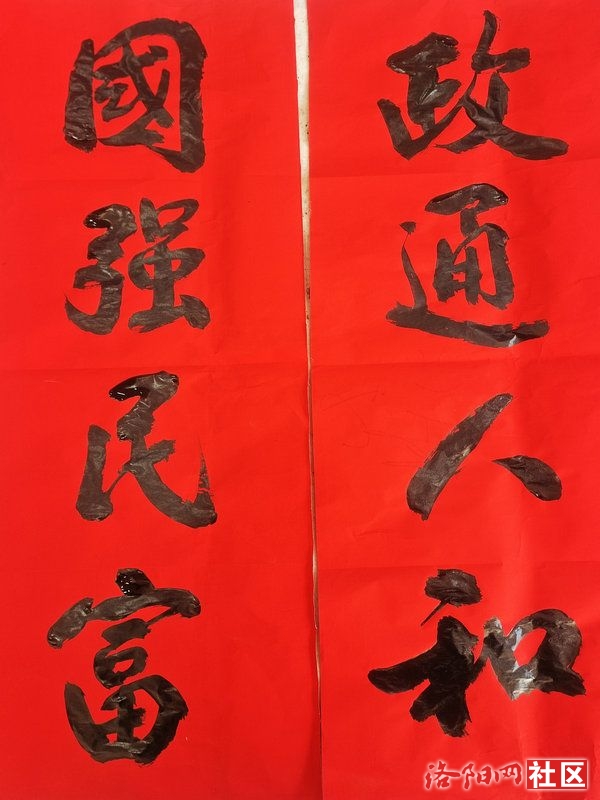 政通人和
國强民富
洛阳网社区